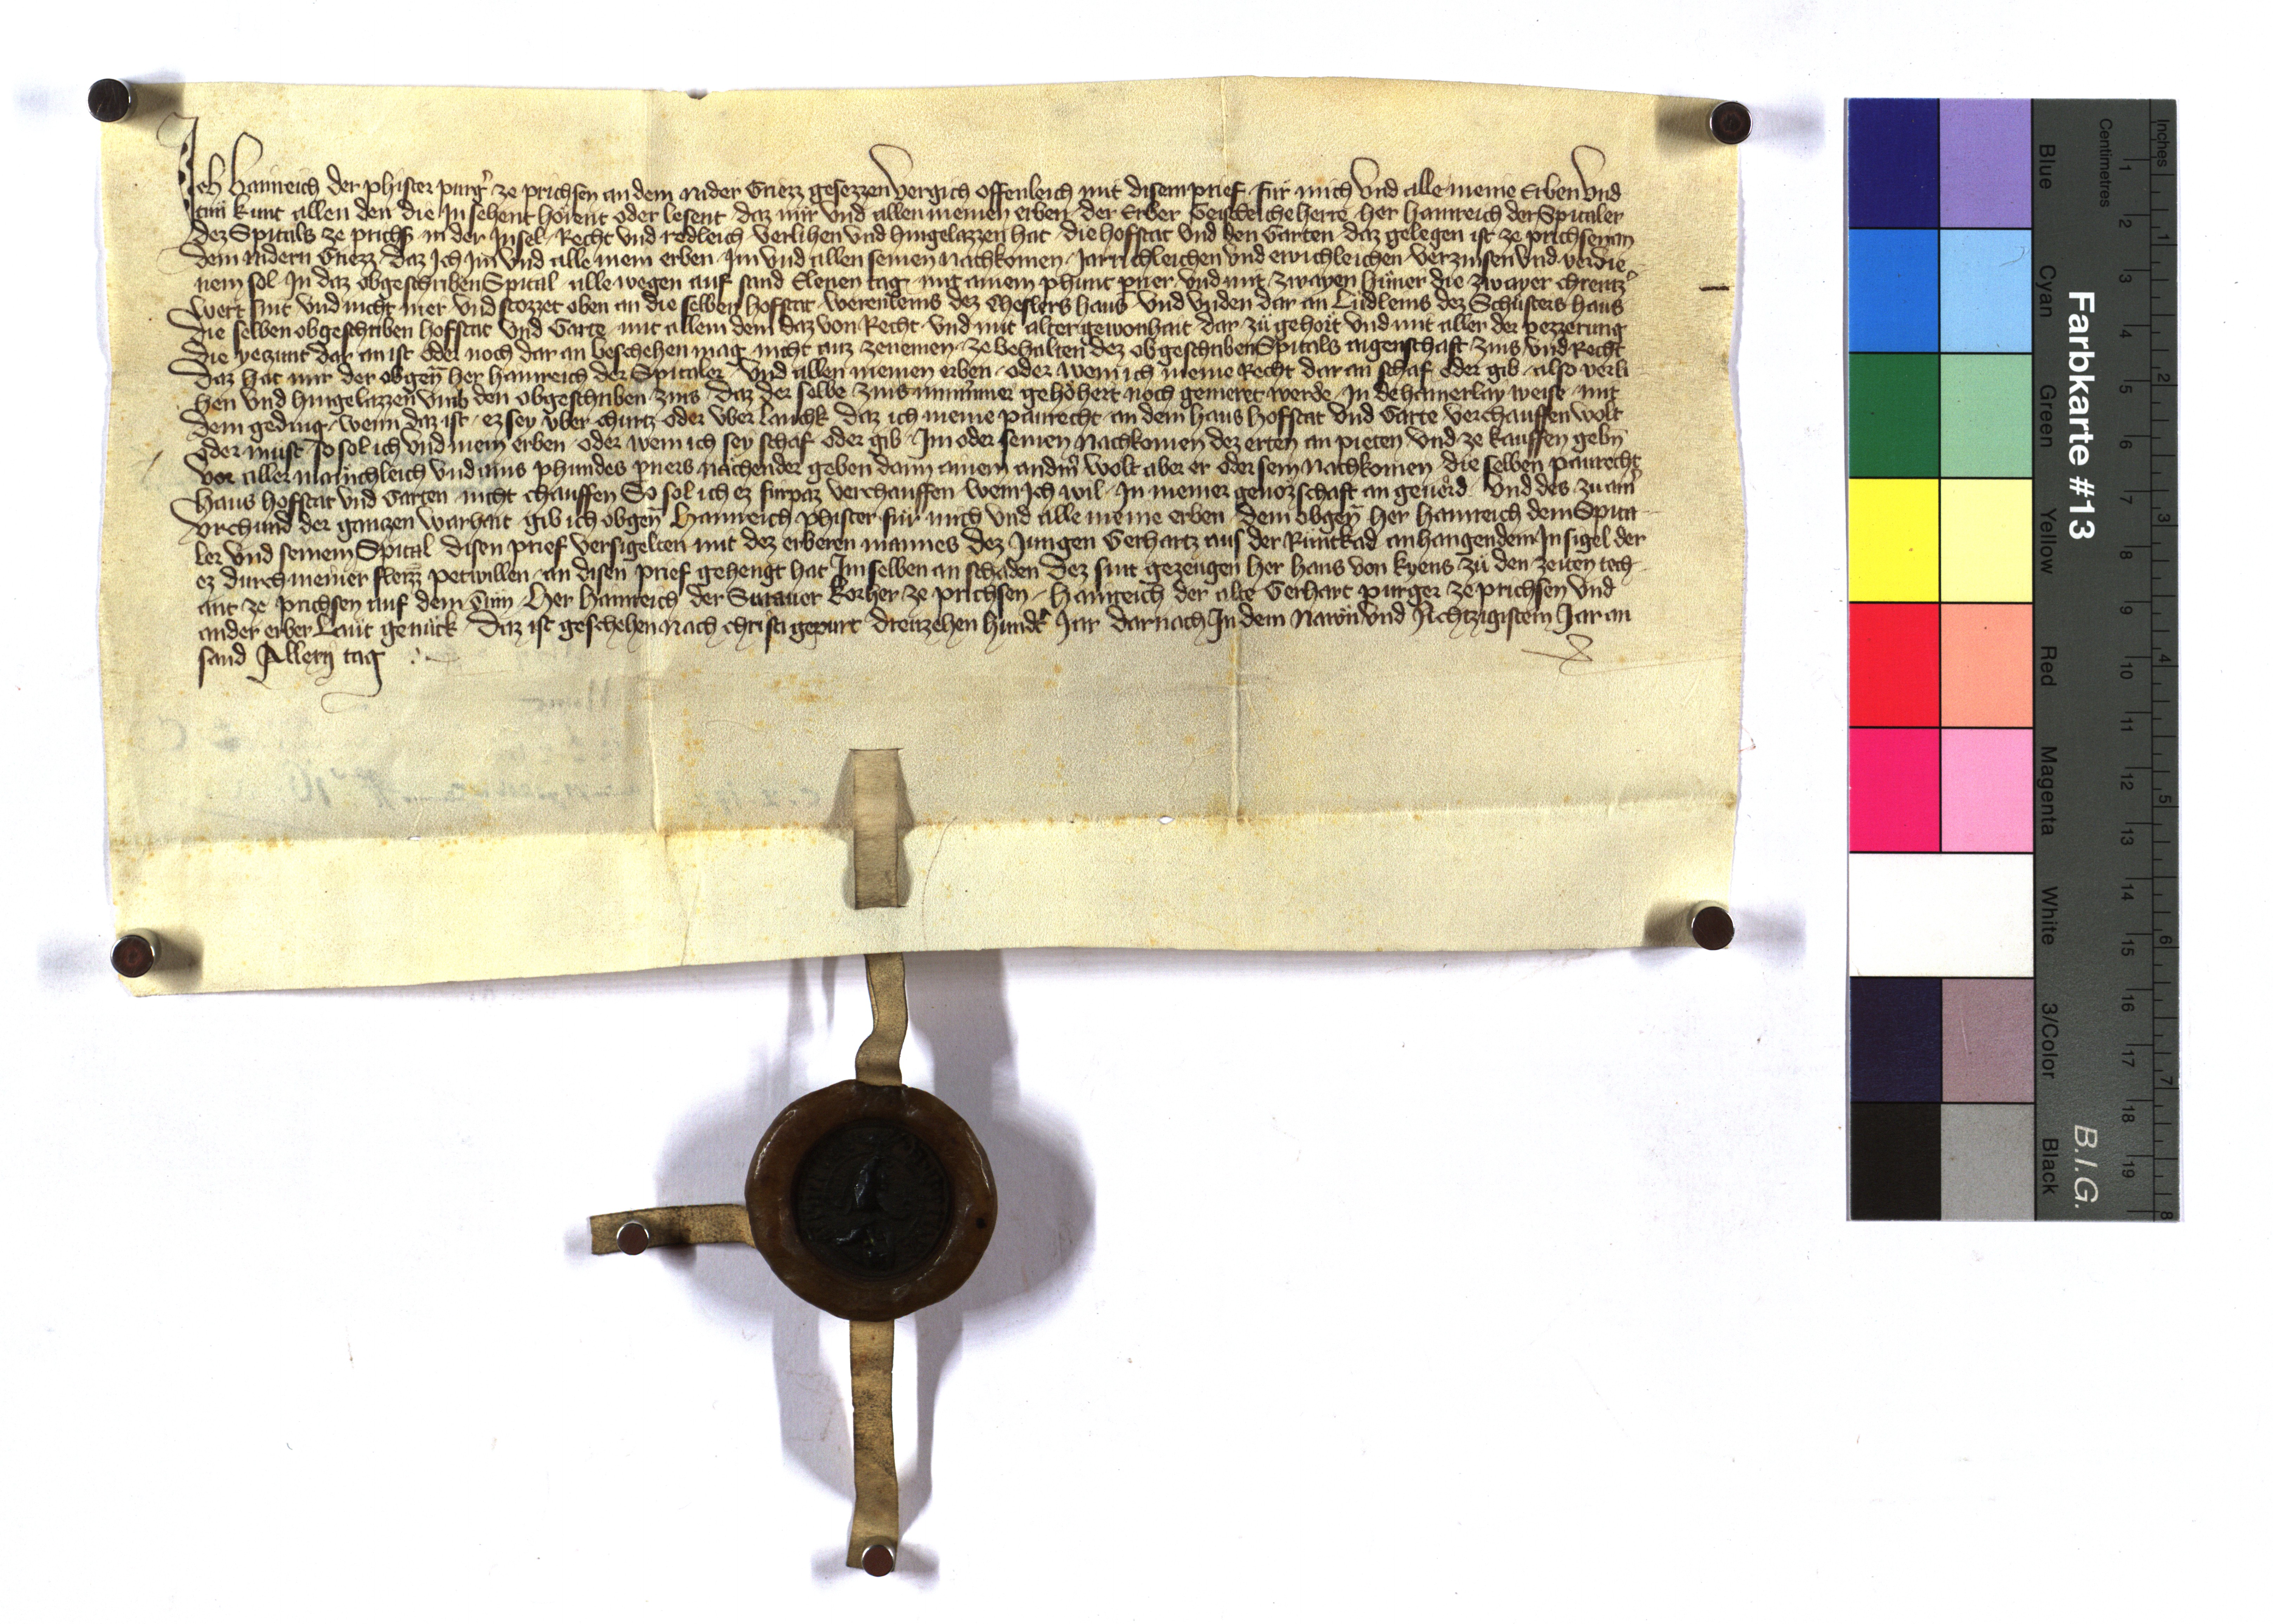 Ich Hainreich der phister purg̉ ze prichsen an dem nider Griezz gesezzen vergich offenleich mit disem prief für mich vnd alle meine Erben vnd
tün kunt allen den die In sehent hörent oder lesent daz mir vnd allen meinen erben der Erber Geistleiche herre her Hainreich der Spitaler
dez Spitals ze prichs̄ in der Insel Recht vnd redleich verlihen vnd hingelazzen hat die hofstat vnd den Garten daz gelegen ist ze prichsen an
dem nidern Griezz daz Ich Im vnd alle mein erben Im vnd allen seinen nachkomen Jarichleichen vnd ewichleichen verzinsen vnd verdie-
nem sol In daz obgeschriben Spital alle wegen auf sand Elenen tag mit ainem phunt pner vnd mit zwayen hüner die zwayer chreutz̉
wert sint vnd nicht mer vnd stozzet oben an die selben hofstat werenleins dez Meslers haus vnd vnden dar an Lüdleins dez Schusters haus
die selben obgeschriben hofstat vnd Garte mit allem dem daz von Recht vnd mit alter gewonhait dar zü gehört vnd mit aller der pezzerung
die yezunt dar an ist oder noch dar an beschehen mag nicht auz zenemen ze behalten dez obgeschriben Spitals aigenschaft zins vnd Recht
daz hat mir der obgen̄ her hainreich der Spitaler vnd allen meinen erben oder wem ich meine Recht dar an schaf oder gib also verli
hen vnd hingelazzen vmb den obgeschriben zins daz der selbe zins nimmer gehöhert noch gemeret werde In dehainerlay weise mit
dem geding wenn daz ist ez sey vber churtz oder vber lanchk daz ich meine paurecht an dem haus hofstat vnd Garte verchauffen wolt
oder müst so sol ich vnd mein erben oder wem ich sey schaf oder gib Im oder seinen nachkomen dez ersten an pieten vnd ze kauffen gebn̄
vor aller mänichleich vnd ains phundes pners nächender geben dann ainem andm̄ wolt aber er oder sein nachkomen die selben paurecht
haus hofstat vnd Garten nicht chauffen So sol ich ez fürpaz verchauffen wem Ich wil In meiner genozschaft an geuërd vnd des zu aim̉
vrchund der ganczen warhait gib ich obgen̄ Hainreich phister für mich vnd alle meine erben dem obgen̄ her hainreich dem Spita-
ler vnd seinem Spital disen prief versigelten mit dez erberen mannes dez Jungen Gerhartz aus der Runkad anhangendem Insigel der
ez durch meiner petwillen an disen prief gehengt hat Im selben an schaden Dez sint gezeugen her hans von kyens zü den zeiten tech-
ant ze prichsen auf dem Tüm Her hainreich der korher ze prichsen Hainreich der alte Gerhart purger ze prichsen vnd
ander erber Läut genück Daz ist geschehen Nach christi gepurt dreuzehen hundt̉ Jar darnach In dem Nawn vnd Achtzigistem Jar an
sand tag
Farbkarte #13
B.I.G.
Inches 1 2 3 4 5 6 7 8
Centimetres 1 2 3 4 5 6 7 8 9 10 11 12 13 14 15 16 17 18 19
Blue
Cyan
Green
Yellow
Red
Magenta
White
3/Color
Black